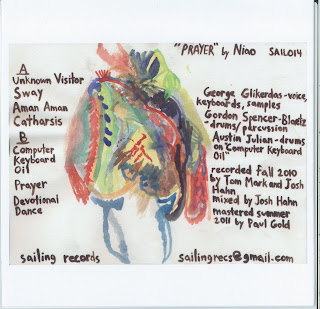 "PRAYER" by Niao SAIL014
A
Unknown Visitor
Sway
Aman Aman
Catharsis
B
Computer
Keyboard
Oil
Prayer
Devotional
Dance
George Glikerdas-voice,
keyboards, samples
Gordon Spencer-Blaetz
-drums/percussion
Austin Julian-drums
on "Computer Keyboard
Oil"
recorded Fall 2010
by Tom Mark and Josh
Hahn
mixed by Josh Hahn
mastered summer
2011 by Paul Gold
sailing records
sailingrecs@gmail.com